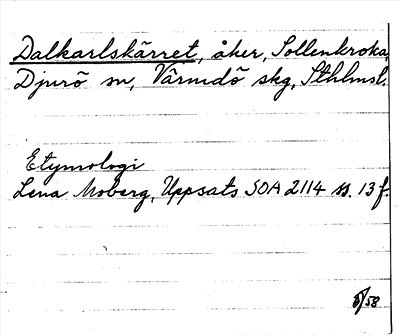 Dalkarlskärret, åker, Sollenkroka,
Djurö sn, Värmdö skg, Sthlmsl.
Etymologi
Lena Moberg, Uppsats SOA 2114 ss. 13 f.